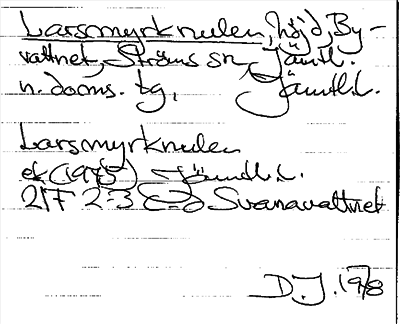 Larsmyrknulen, höjd, By-
vattnet, Ströms sn, Jämtl.
n. doms. tg, Jämtl.l.
Larsmyrknulen
ek (1975) Jämtl.l.
21F 2-3 Svanavattnet
D.J. 1978